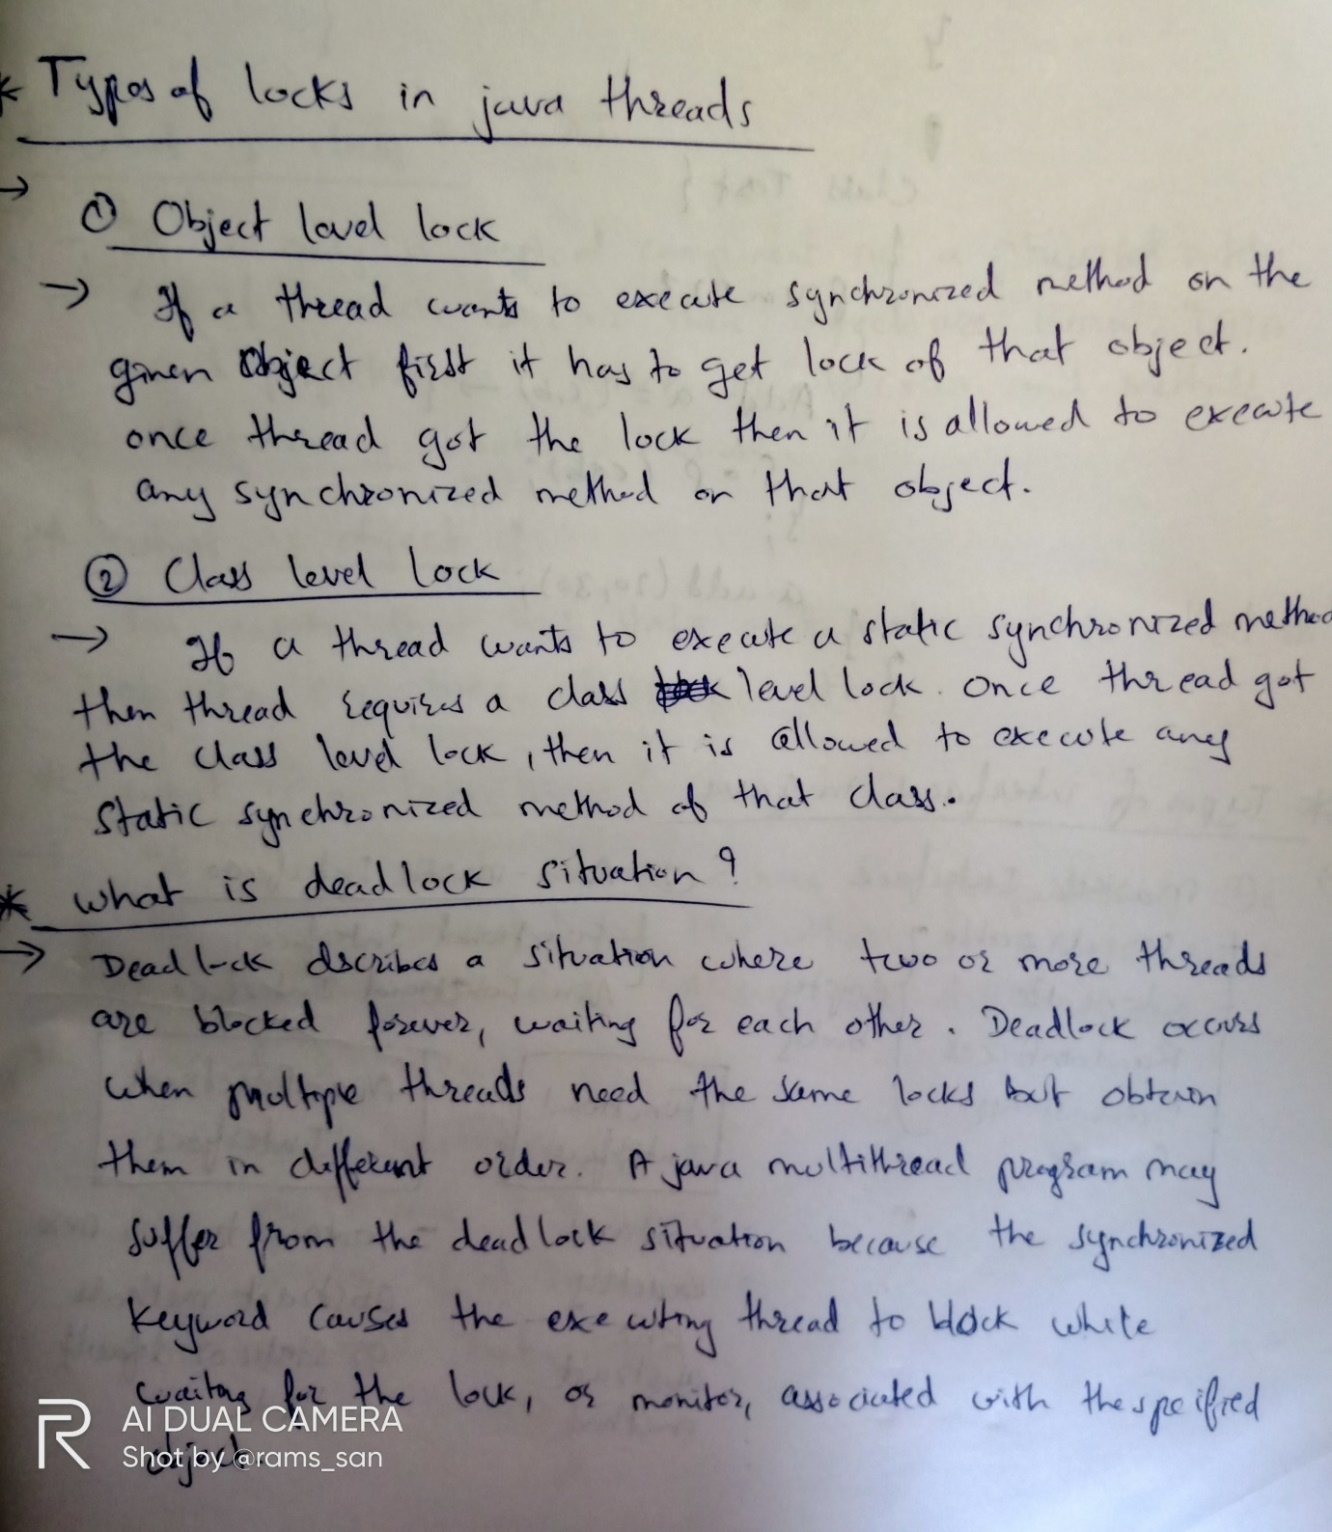 * Types of locks in java threads
→
① Object level lock
→ If a thread wants to execute synchronized method on the
given Object first it has to get lock of that object.
once thread got the lock then it is allowed to execute
any synchronized method on that object.
② Class level lock
→ If a thread wants to execute a static synchronized method
then thread requires a class level lock. Once thread got
the class level lock, then it is allowed to execute any
static synchronized method of that class.
* what is deadlock situation?
→ Deadlock dscribes a situation where two or more threads
are blocked forever, waiting for each other. Deadlock occurs
when multiple threads need the same locks but obtain
them in different order. A java multithread program may
suffer from the deadlock situation because the synchronized
keyword causes the executing thread to block while
waiting for the lock, or monitor, associated with the specified
object.
R AI DUAL CAMERA
Shot by @rams_san